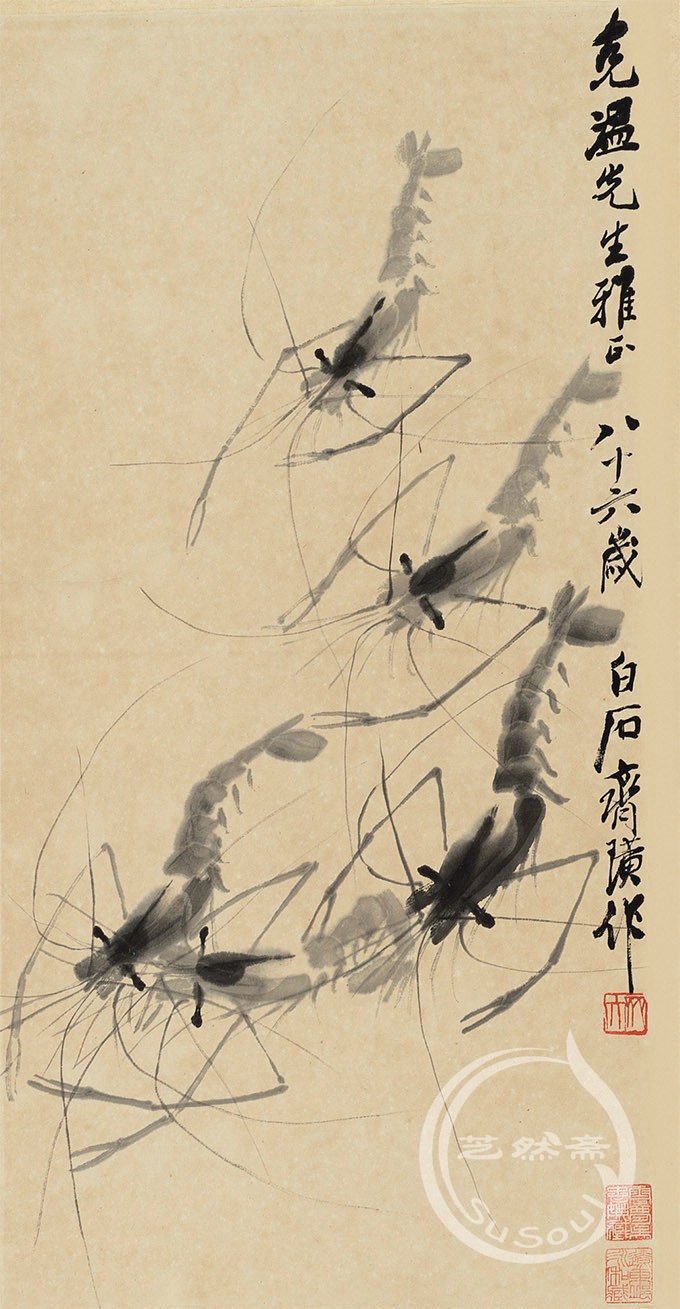 克温先生雅正 八十六岁 白石齐璜作
芝然斋
SuSoul